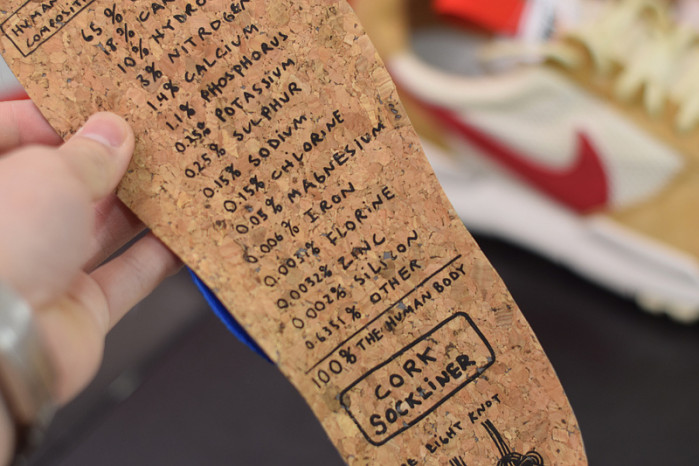 HUMAN
COMPOSITI
65%
18% CAR
10% HYDRO
3% NITROGEN
1.4% CALCIUM
1.1% PHOSPHORUS
0.25% POTASSIUM
0.25% SULPHUR
0.15% SODIUM
0.15% CHLORINE
0.05% MAGNESIUM
0.006% IRON
FLORINE
0.0032% ZINC
0.002% SILICON
0.6351% OTHER
100% THE HUMAN BODY
CORK
SOCKLINER
EIGHT KNOT